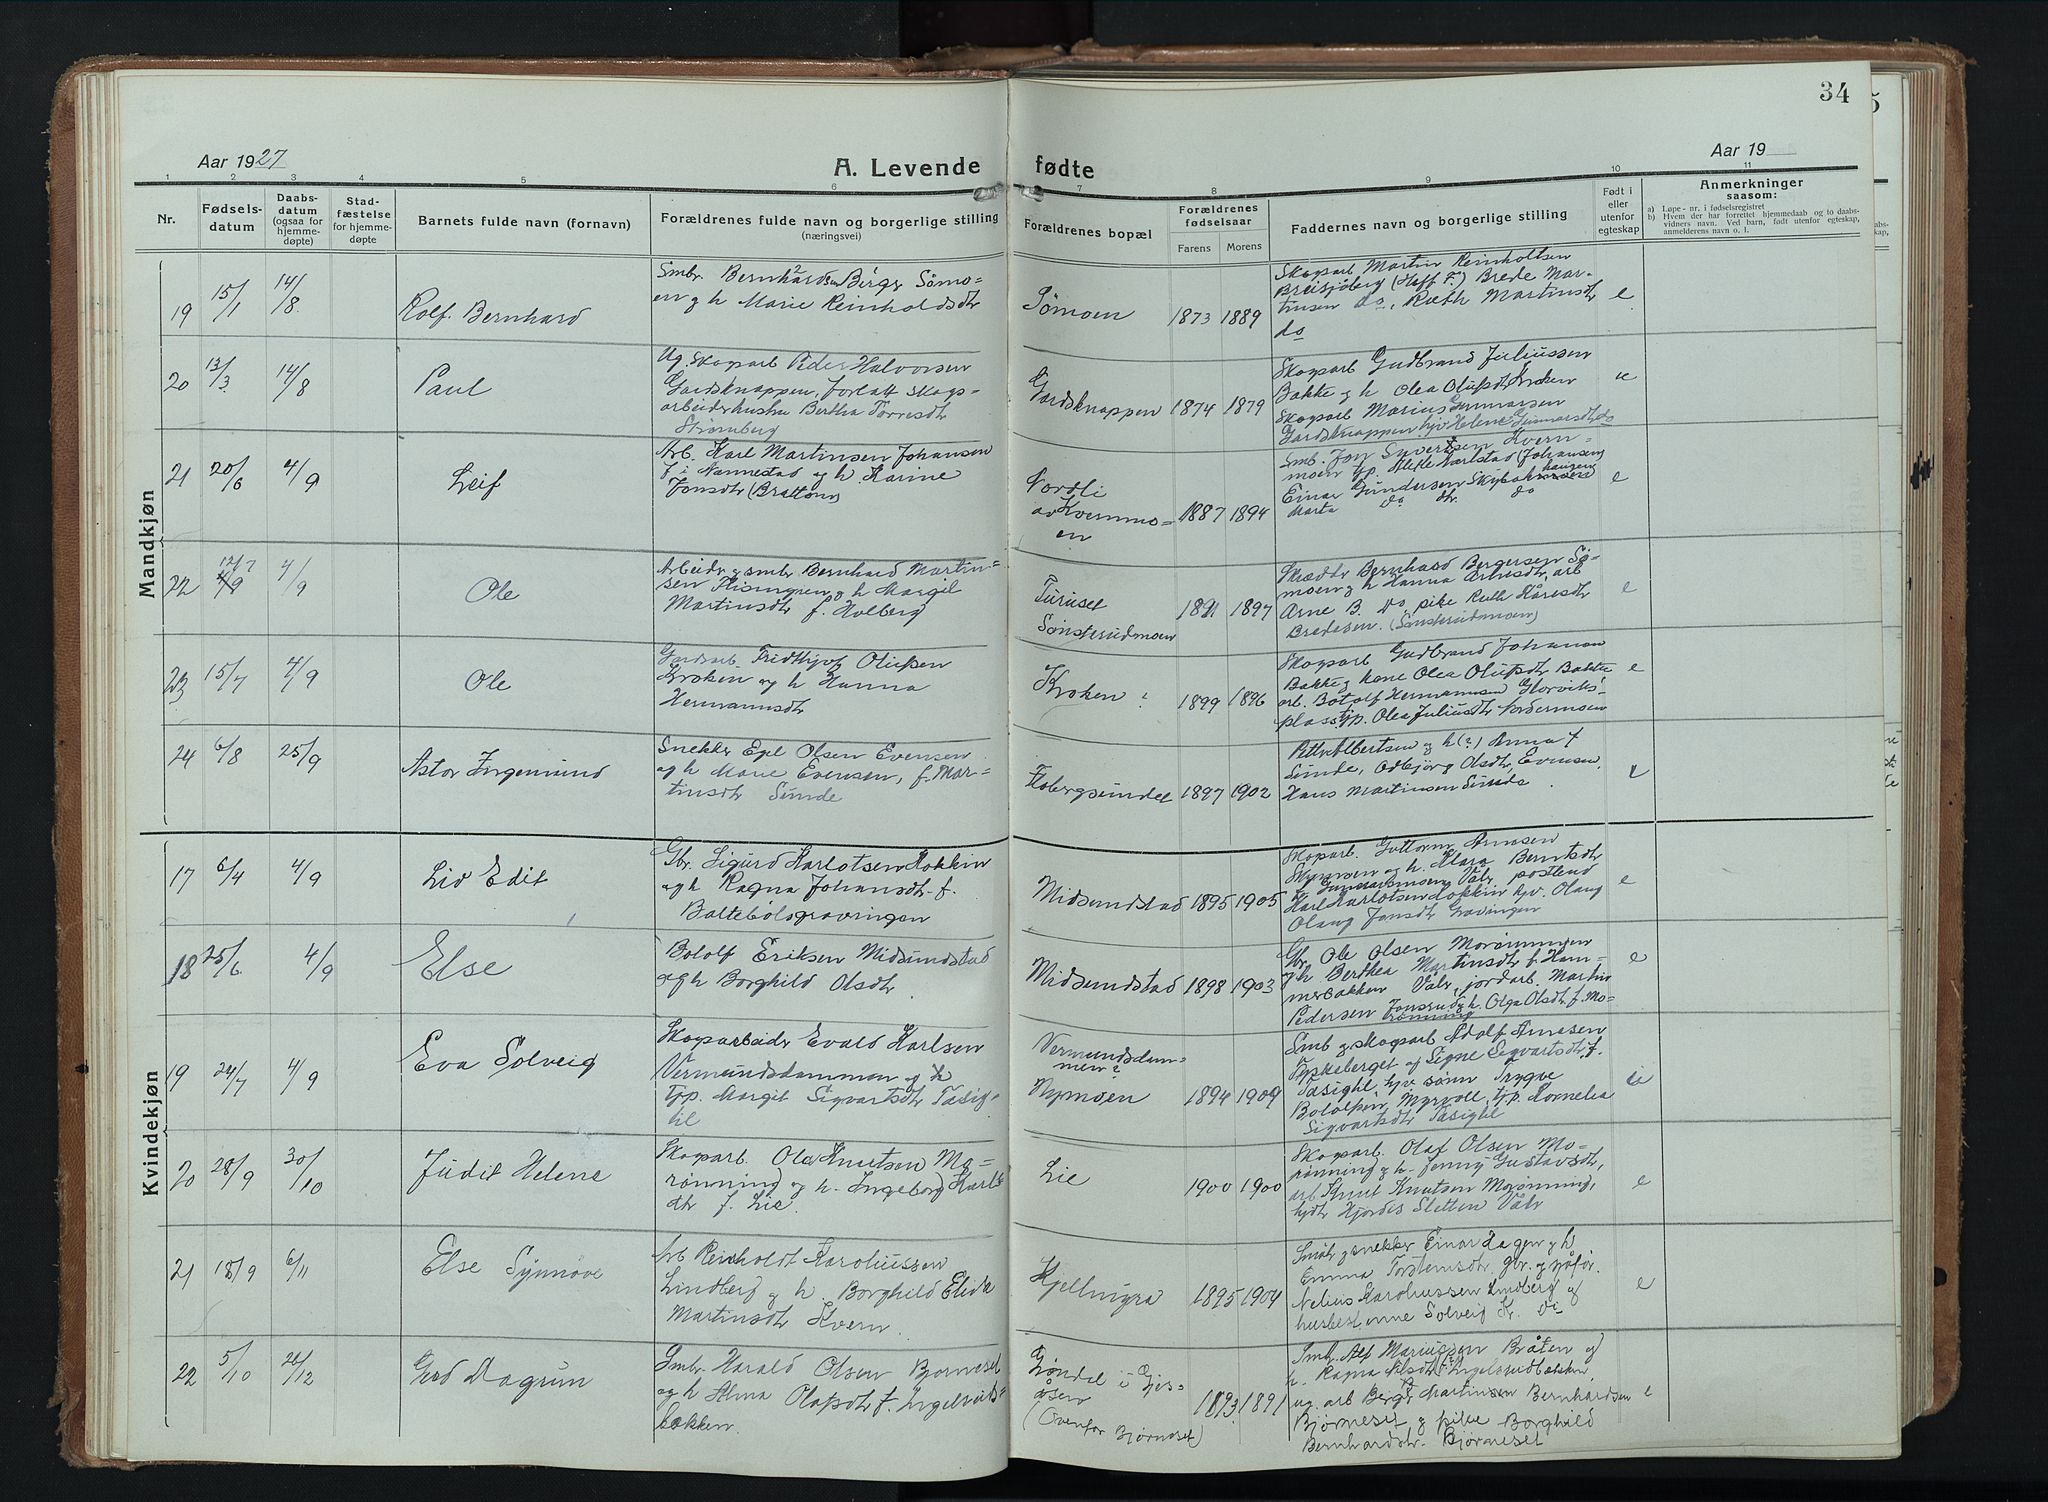 34
Aar 1927
A. Levende
fødte
Aar 19
1 2 3 4 5 6 7 8 9 10 11
Nr.
Fødsels-
datum
Daabs-
datum
(ogsaa for
hjemme-
døpte)
Stad-
fæstelse
for hjemme-
døpte
Barnets fulde navn (fornavn)
Forældrenes fulde navn og borgerlige stilling
(næringsvei)
Forældrenes bopæl
Forældrenes
fødselsaar
Farens Morens
Faddernes navn og borgerlige stilling
Født i
eller
utenfor
egteskap
Anmerkninger
saasom:
a) Løpe-nr. i fødselsregistret
b) Hvem der har forrettet hjemmedaab og to daabs-
vidners navn. Ved barn, født utenfor egteskap,
anmelderens navn o. l.
Mandkjøn
19 15/1 14/8 Rolf Bernhard
Smbr. Bernhardsen Berger Sømo=
en og h Marie Reinholdsdtr
Sømoen 1873 1889
Skogsarb Martin Reinholtsen
Breisjøberg (Haff F.) Brede Mar-
tinsen do, Ruth Martinsdtr
do
e
20 13/3 14/8 Paul
Ug. Skogarb Peder Halvorsen
Gardsknappen, forlatt skogs-
arbeiderhustru Bertha Torresdtr
Strømberg
Gardsknappen 1874 1879
Skogsarb Gudbrand Juliussen
Bakke og h Olea Olufsdtr Kroken
Skogsarb Marius Gunnarsen
Gardsknappen hjv Helene Gunnarsdtr do
u
21 20/6 4/9 Leif
Arb. Karl Martinsen Johansen
f i Nannestad og h. Karine
Jonsdtr (Brattom)
Nordli
av Kvernmo=
en
1887 1894
Smb. Jon Syvertsen Kvern-
moen
Einar Gundersen Skybak haugen
Marta do dtr do
e
22 12/7 4/9 Ole
Arbeidr og smbr Bernhard Martin=
sen Flisingren og h Margit
Martinsdtr f. Holberg
Furuset
Sønsterudmoen
1891 1897
Skrædder Bernhard Bergersen Sø-
moen og h Hanna Arnesdtr, arb
Arne B. do, pike Ruth Kåresdtr
Bredesen. (Sønsterudmoen)
e
23 15/7 4/9 Ole
Gardsarb. Fridthjof Olufsen
Kroken og h Hanna
Hermannsdtr
Kroken ? 1899 1896
Skogsarb Gudbrand Johannan
Bakke og kone Olea Olufsdtr Bakke
arb. Botolf Hermannsen Glorviks-
plass tjp. Olea Juliusdtr Nordermoen
e
24 6/8 25/9 Astor Ingemund
Snekker Egil Olsen Evensen
og h Marie Evensen, f. Mar-
tinsdtr Sunde
Flobergsundet 1897 1902
Petter Albertsen og h (?) Anna f
Sunde, Odbjørg Olsdtr, Evensen,
Hans Martinsen Sunde
e
Kvindekjøn
17 6/4 4/9 Liv Edit
Gbr. Sigurd Karlotsen Løkkin
og h Ragna Johansdtr f.
Baltebølsgravingen
Midsundstad 1895 1905
Skogsarb. Guttorm Arnesen
Nymoen og h. Klara Berntsdtr
f. Gunnarsmoen, Våler postbud
Karl Karlotsen Løkkin hjv. Olaug
Olaug Jonsdtr Gravingen
e
18 25/6 4/9 Else
Botolf Eriksen Midsundstad
og h Borghild Olsdtr
Midsundstad 1898 1903
Gbr. Ole Olsen Morønningen
og h Berthea Martinsdtr f. Ham-
merbakken Våler, jordarb. Martin
Pedersen Jonsrud og h. Olga Olsdtr f. Mo-
rønning
e
19 24/7 4/9 Eva Solveig
Skogsarbeidr Evald Karlsen
Vermundsdammen og h
tjp. Margit Sigvartsdtr Tasig-
til
Vermundsdam=
men?
Nymoen
1894 1909
Smb og skogsarb Adolf Arnesen
Tyskeberget og Signe Sigvartsdtr, f.
Tasightl hjv sønn Trygve
Botolfsen, Myrvoll, tjp. Kornelia
Sigvartsdtr Tasightl
u
20 28/9 30/10 Judit Helene
Skogsarb. Ole Knutsen Mo=
rønning og h. Ingeborg Karls
dtr f. Lie.
Lie 1900 1900
Skogsarb. Olaf Olsen Mo-
rønning og h. Jenny Gustavsdtr,
arb Knut Knutsen Morønning,
hjdtr Hjørdis Sletten Våler
e
21 18/9 6/11 Else Synnøve
Arb Reinholdt Karoliussen
Lindberg og h. Borghild Elida
Martinsdtr Kvern.
Kjellmyra 1895 1904
Småbr og snekker Einar Hagen og h
Emma Torstensdtr. Gbr. og sjåfør.
Nelius Karoliussen Lindberg og
husbestinne Solveig Kr. do
e
22 5/10 26/12 Gerd Dagrun
Smbr. Harald Olsen Bjørneset
og h Alma Olafsdtr f. Ingelsruds=
bakken.
Grøndal i Gjes-
åsen
(Ovenfor Bjørneset)
1893 1891
Smbr. Alf Mariussen Bråten og
h. Ragna Alfsdtr f. Ingelsrudbakken,
ug. arb Berger Martinsen Bernhardsen
Bjørneset og pike Borghild
Bernhardsdtr. Bjørneset
e